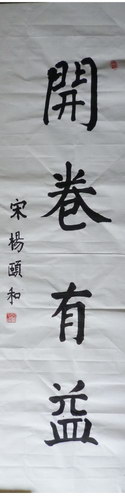 開卷有益
宋楊頤和